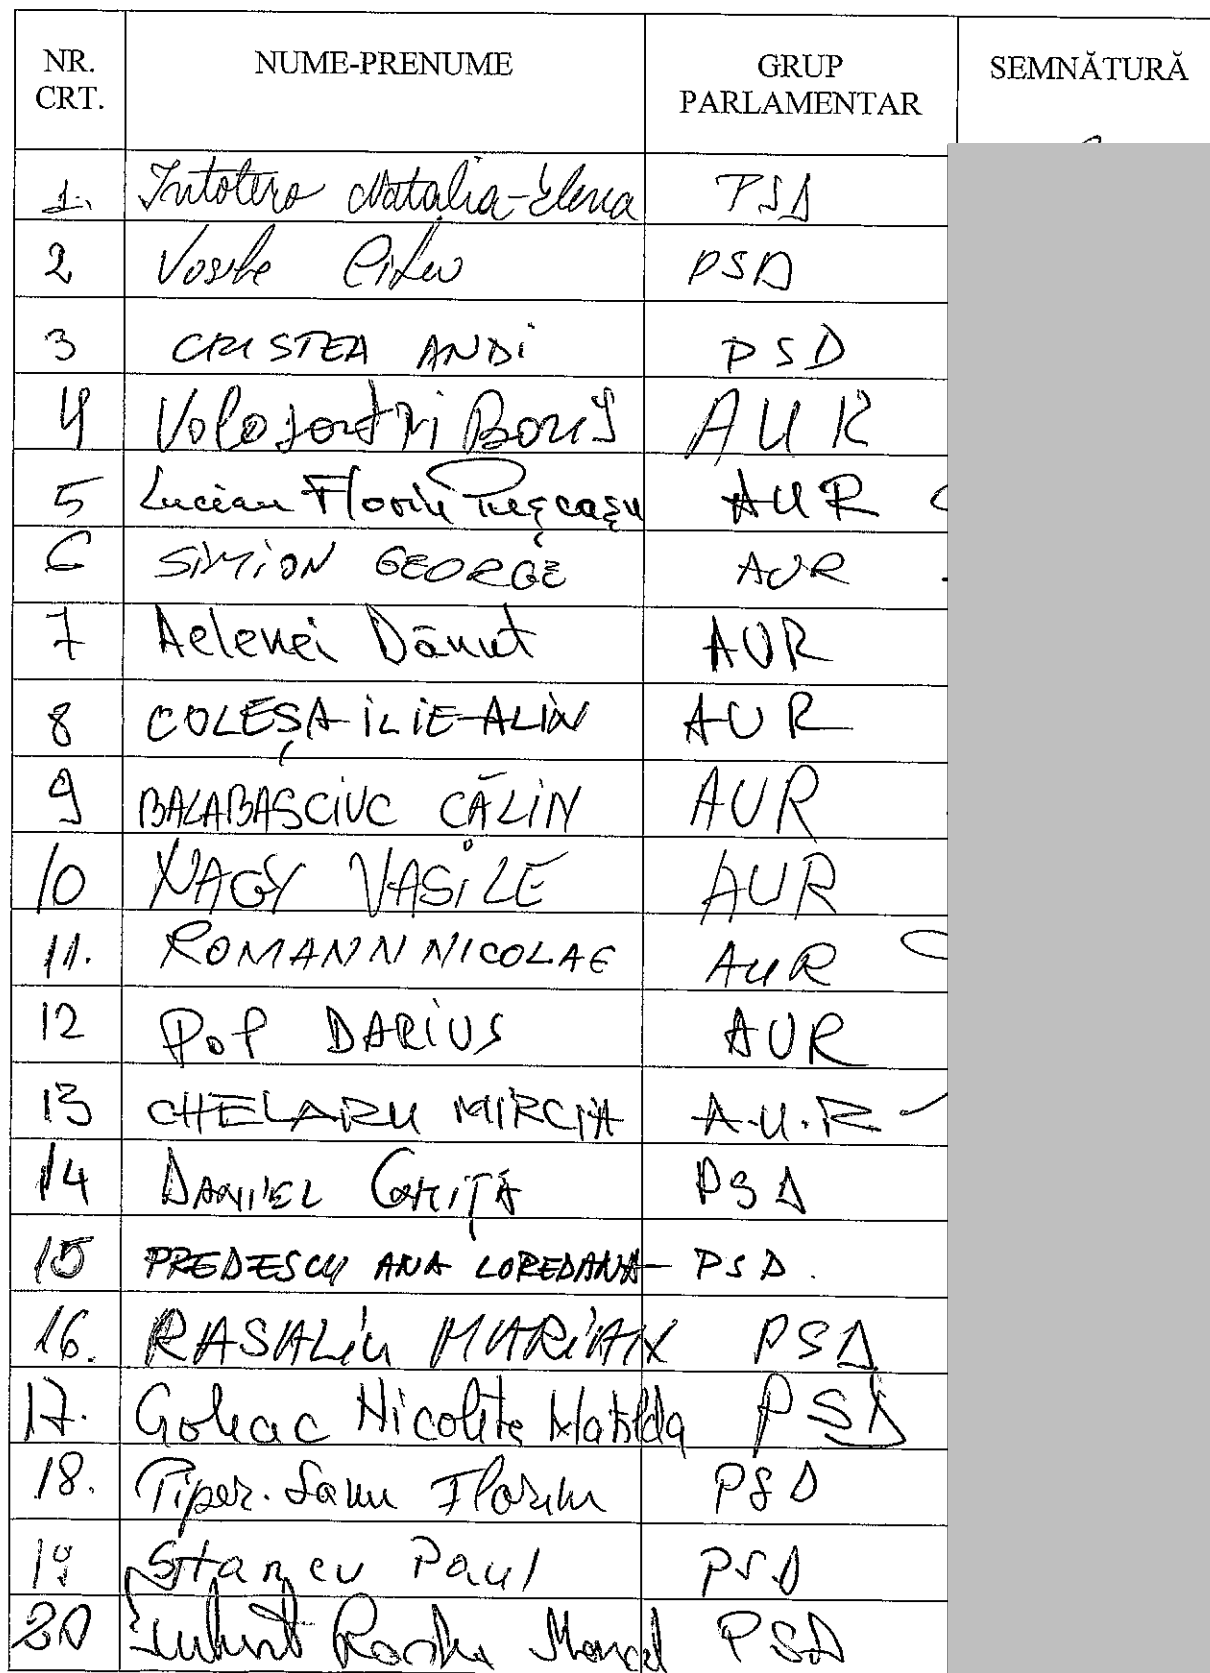 NR. CRT. NUME-PRENUME GRUP PARLAMENTAR SEMNĂTURĂ
1. Intotero Natalia-Elena PSD
2 Vasile Cîtu PSD
3 CRISTEA ANDI PSD
4 Volosatîi Boris AUR
5 Lucian Florin Pușcașu AUR
6 SIMION GEORGE AUR
7 Aelenei Dănuț AUR
8 COLEȘA-ILIE-ALIN AUR
9 BALABASCIUC CĂLIN AUR
10 NAGY VASILE AUR
11. ROMAN NICOLAE AUR
12 Pop DARIUS AUR
13 CHELARU MIRCIA A.U.R
14 DANIEL GHIȚĂ PSD
15 PREDESCU ANA LOREDANA PSD.
16. RASALIU MARIAN PSD
17. Goleac Nicoleta Matilda PSD
18. Piper-Savu Florin PSD
19 Stancu Paul PSD
20 Marcel PSD